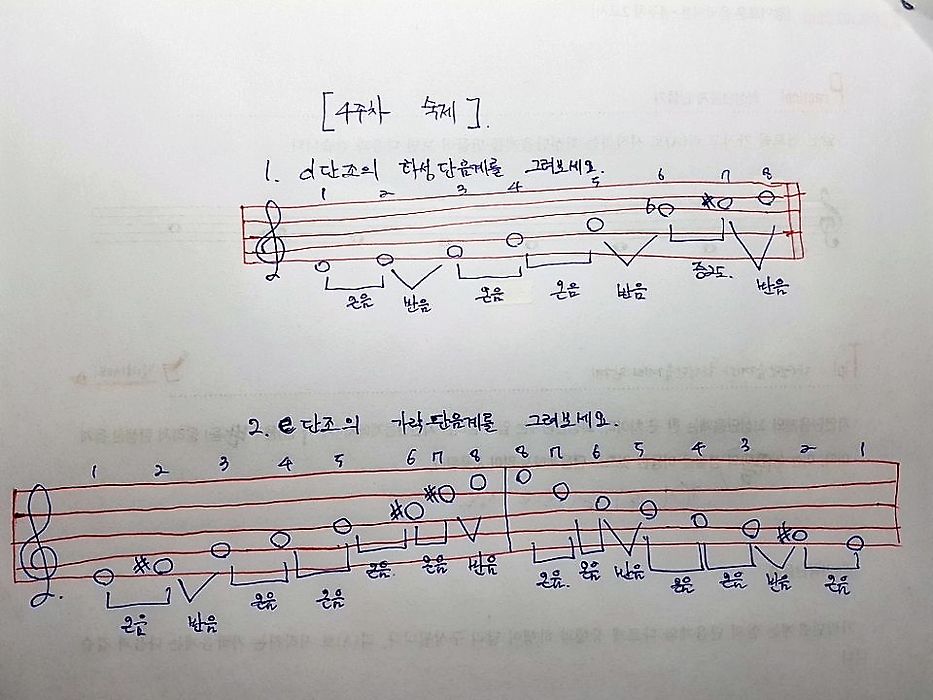 [4주차 숙제].
1. d단조의 화성단음계를 그려보세요.
1 2 3 4 5 6 7 8
♭ #
온음 반음 온음 온음 반음 증2도. 반음
2. e단조의 가락단음계를 그려보세요.
1 2 3 4 5 6 7 8 8 7 6 5 4 3 2 1
# # # #
온음 반음 온음 온음 온음. 온음 반음 온음. 온음 반음 온음 온음 반음 온음